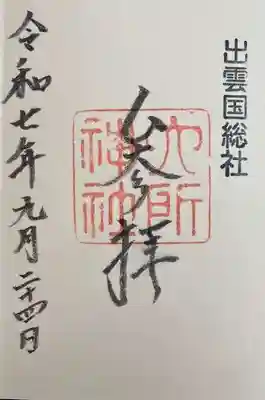 出雲国総社
参拝
六所
神社
令和七年九月二十四日